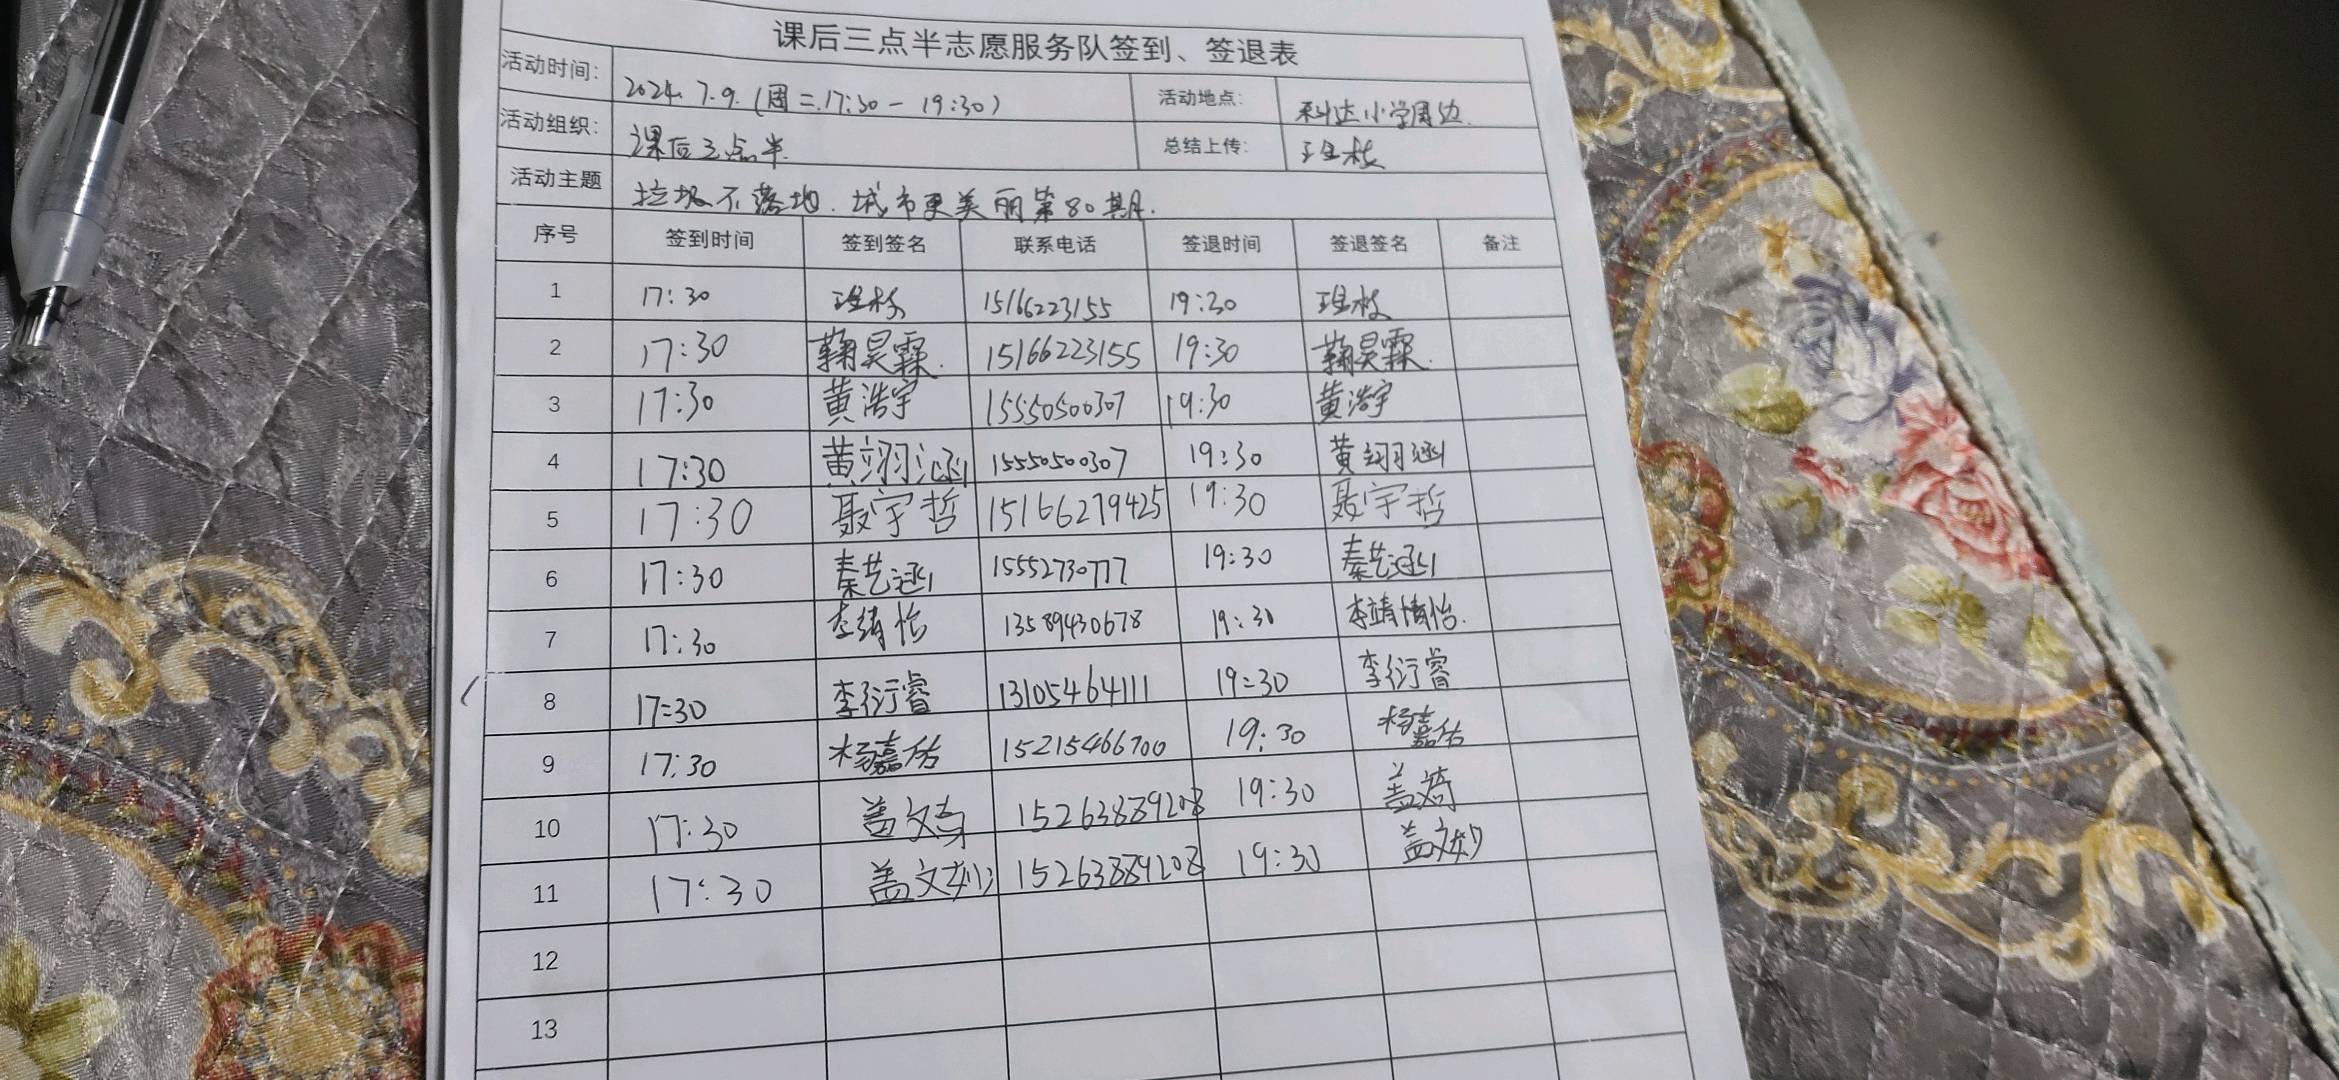 课后三点半志愿服务队签到、签退表
活动时间: 2024.7.9.(周二.17:30－19:30) 活动地点: 科达小学周边.
活动组织: 课后三点半. 总结上传:
活动主题 垃圾不落地.城市更美丽第80期.
序号 签到时间 签到签名 联系电话 签退时间 签退签名 备注
1 17:30 15166223155 19:30
2 17:30 鞠昊霖. 15166223155 19:30 鞠昊霖.
3 17:30 黄浩宇 15550500307 19:30 黄浩宇
4 17:30 黄翊涵 15550500307 19:30 黄翊涵
5 17:30 聂宇哲 15166279425 19:30 聂宇哲
6 17:30 秦艺涵 15552730777 19:30 秦艺涵
7 17:30 李婧怡 13589430678 19:30 怡.
8 17:30 李衍睿 13105464111 19:30 李衍睿
9 17:30 杨嘉佑 15215466700 19:30 杨嘉佑
10 17:30 盖文 15263889208 19:30 盖
11 17:30 盖文妙 15263889208 19:30 盖文妙
12
13